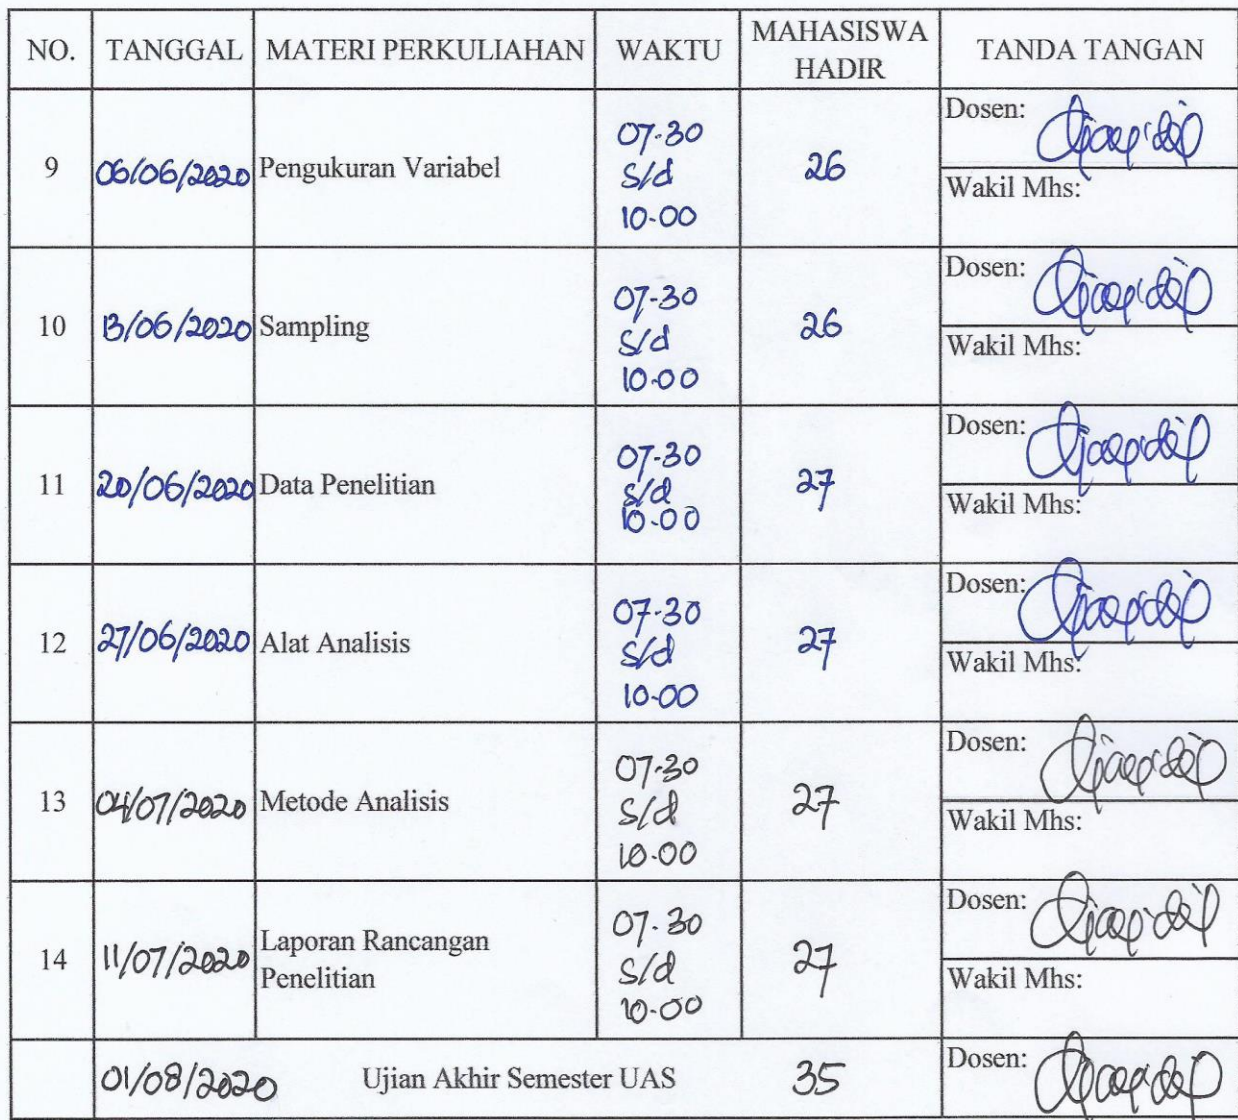 NO. TANGGAL MATERI PERKULIAHAN WAKTU MAHASISWA HADIR TANDA TANGAN
9 06/06/2020 Pengukuran Variabel 07-30 s/d 10-00 26 Dosen:
Wakil Mhs:
10 13/06/2020 Sampling 07-30 s/d 10-00 26 Dosen:
Wakil Mhs:
11 20/06/2020 Data Penelitian 07-30 s/d 10-00 27 Dosen:
Wakil Mhs:
12 27/06/2020 Alat Analisis 07-30 s/d 10-00 27 Dosen:
Wakil Mhs:
13 04/07/2020 Metode Analisis 07-30 s/d 10-00 27 Dosen:
Wakil Mhs:
14 11/07/2020 Laporan Rancangan Penelitian 07-30 s/d 10-00 27 Dosen:
Wakil Mhs:
01/08/2020 Ujian Akhir Semester UAS 35 Dosen: